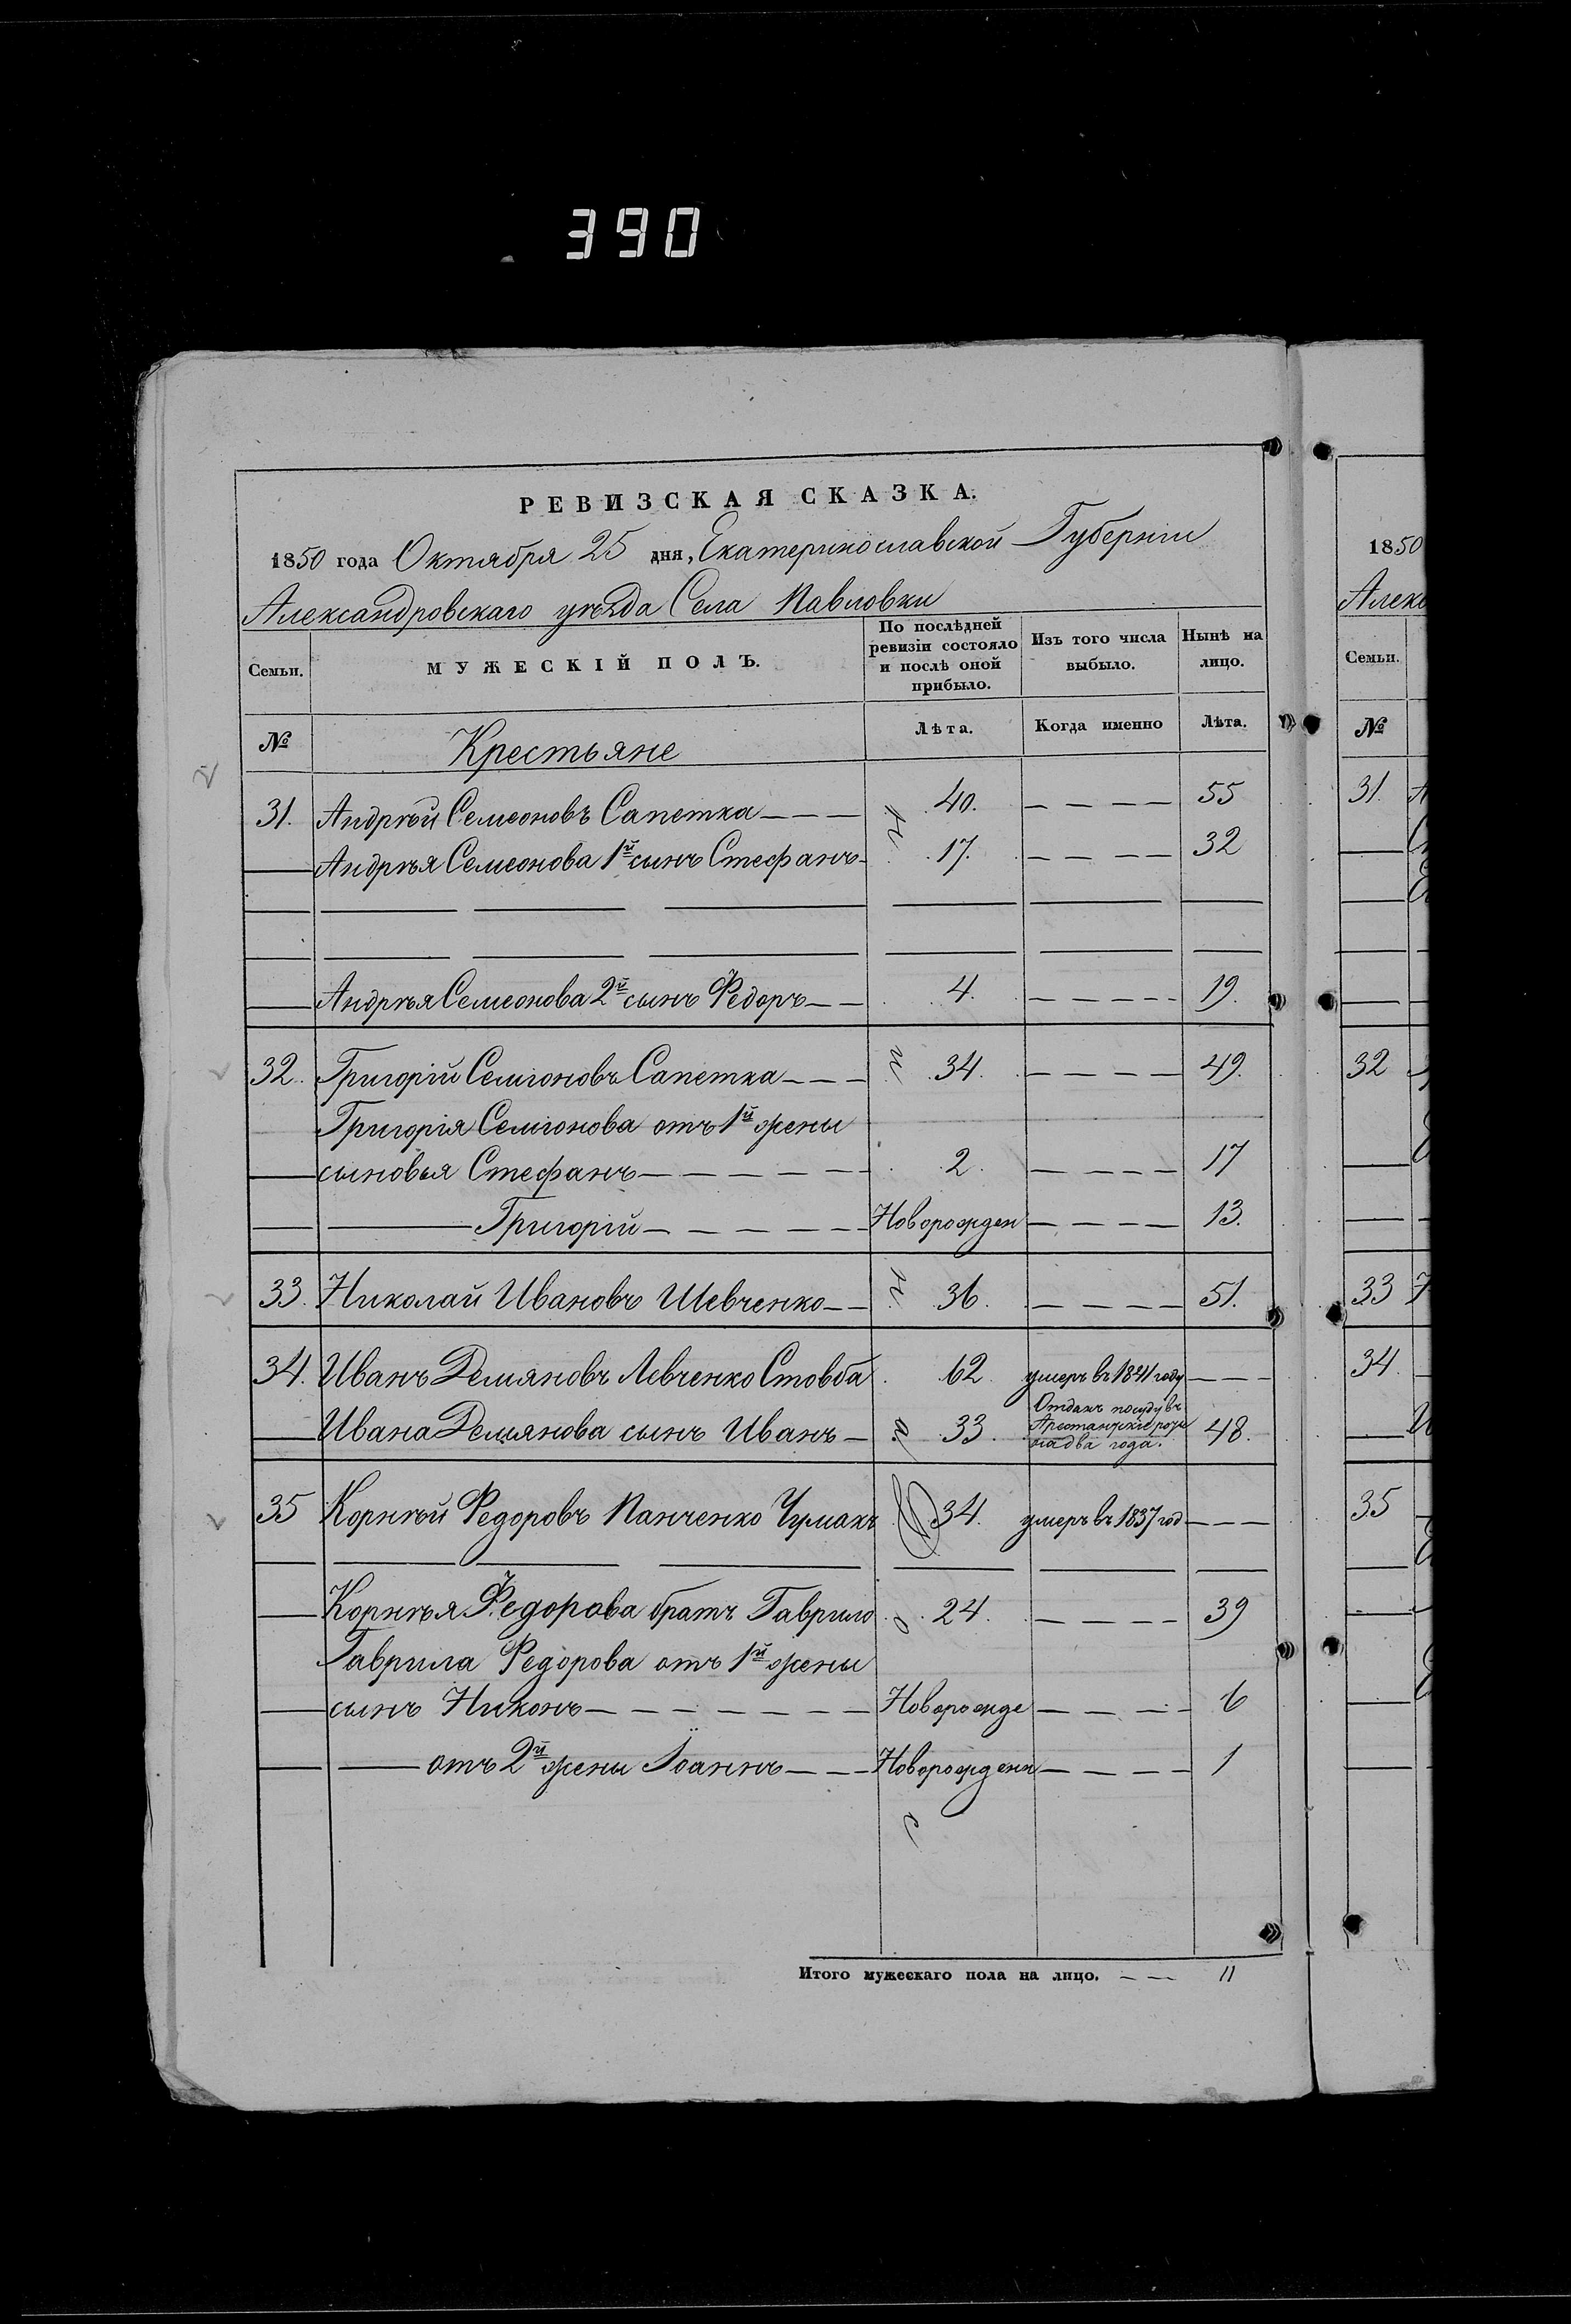 390
РЕВИЗСКАЯ СКАЗКА.
1850 года Октября 25 дня, Екатеринославской Губернiи
Александровскаго уѣзда Села Павловки
Семьи. МУЖЕСКІЙ ПОЛЪ. По послѣдней ревизіи состояло и послѣ оной прибыло. Изъ того числа выбыло. Нынѣ на лицо.
№ Крестьяне Лѣта. Когда именно Лѣта.
31. Андрѣй Семеоновъ Сапетка — — — 40. — — — — 55
— Андрѣя Семеонова 1й сынъ Стефанъ 17. — — — — 32
— Андрѣя Семеонова 2й сынъ Федоръ — — 4. — — — — 19.
32. Григорій Семіоновъ Сапетка — — — 34. — — — — 49.
Григорія Семіонова отъ 1й жены
— сыновья Стефанъ — — — — — 2. — — — — 17
— — Григорій — — — — — Новорожден — — — — 13.
33. Николай Ивановъ Шевченко — — 36. — — — — 51.
34. Иванъ Демяновъ Левченко Стовба 62 умеръ въ 1841 году — — —
— Ивана Демянова сынъ Иванъ — 33. Отданъ посуду въ Арестанские роты на два года. 48.
35 Корнѣй Федоровъ Панченко Чумакъ 34. умеръ въ 1837 год — — —
— Корнѣя Федорова братъ Гаврило 24. — — — — 39
Гаврила Федорова отъ 1й жены
— сынъ Никонъ — — — — — — — Новорожде — — — — 6
— — отъ 2й жены Іоаннъ — — — Новорожденн — — — — 1
Итого мужескаго пола на лицо. — — 11
1850
Алекс
Семьи.
№
31.
32
33
34
35